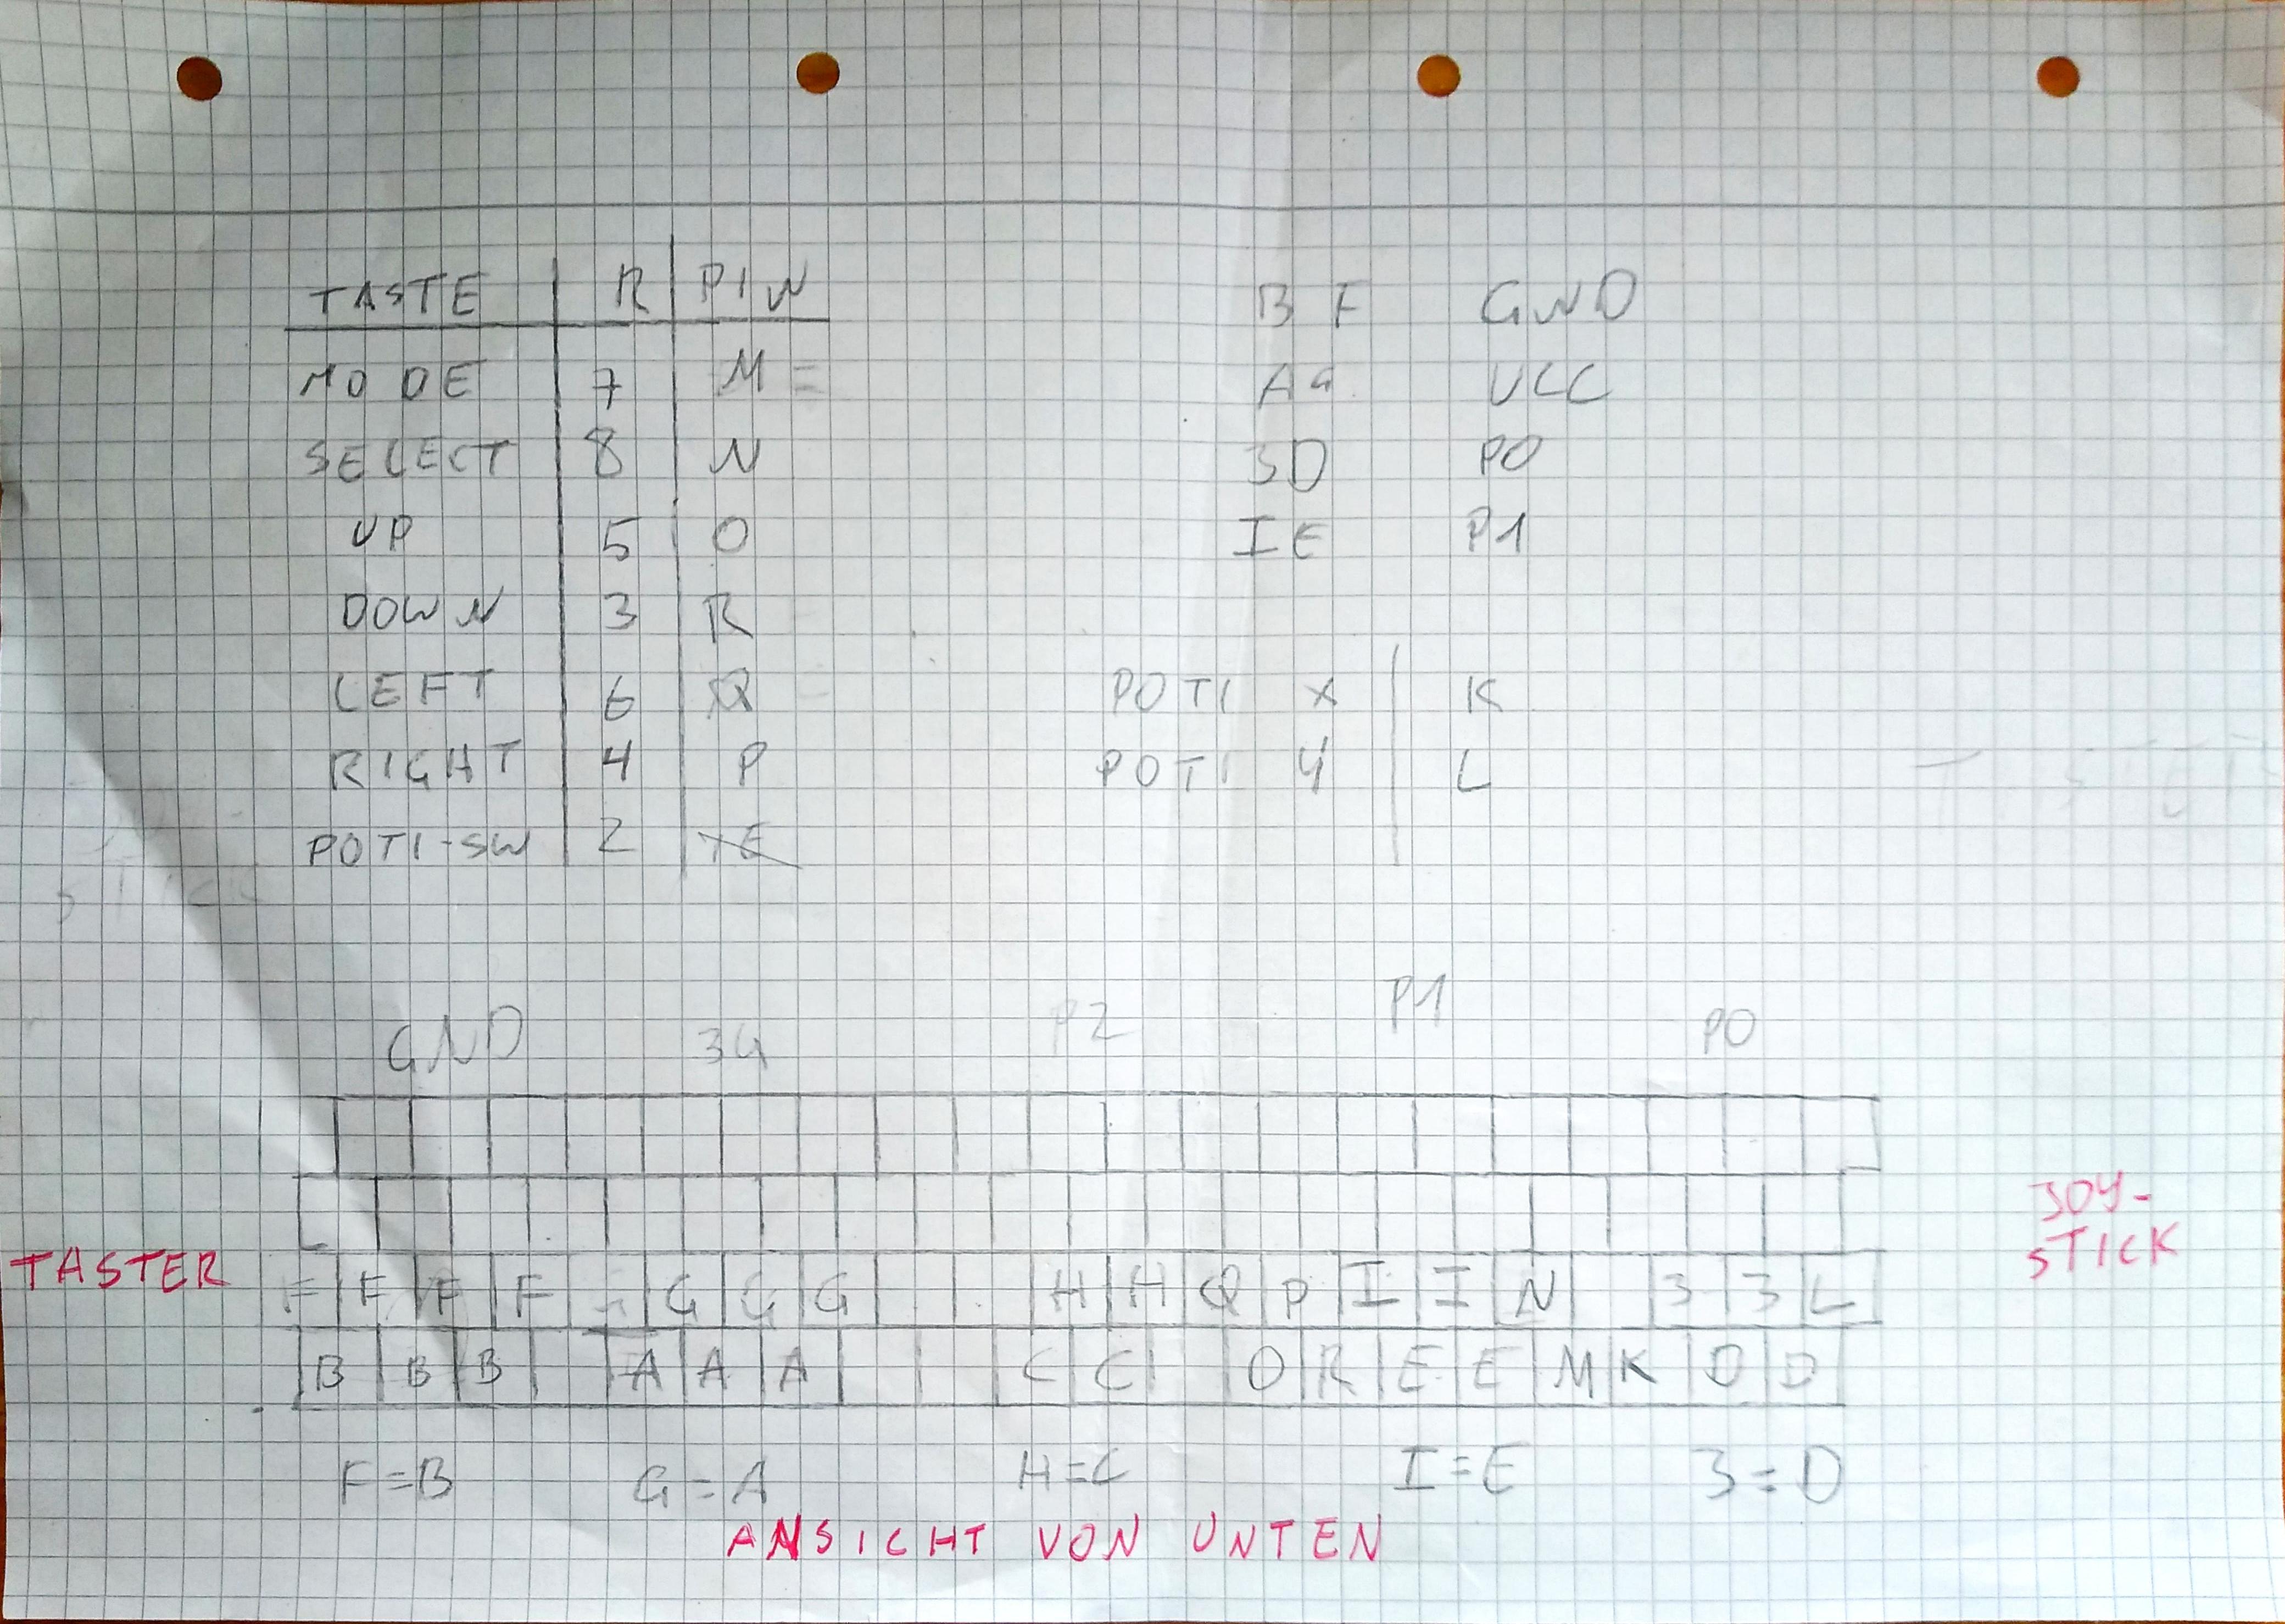 TASTE R PIN
MODE 7 M =
SELECT 8 N
UP 5 O
DOWN 3 R
LEFT 6 Q
RIGHT 4 P
POTI-SW 2
B F GND
AG VCC
3D P0
IE P1
POTI X K
POTI Y L
GND 3G P2 P1 P0
TASTER
JOY-
STICK
F F F F G G G G H H Q P I I N 3 3 L
B B B A A A C C O R E E M K D D
F=B G=A H=C I=E 3=D
ANSICHT VON UNTEN